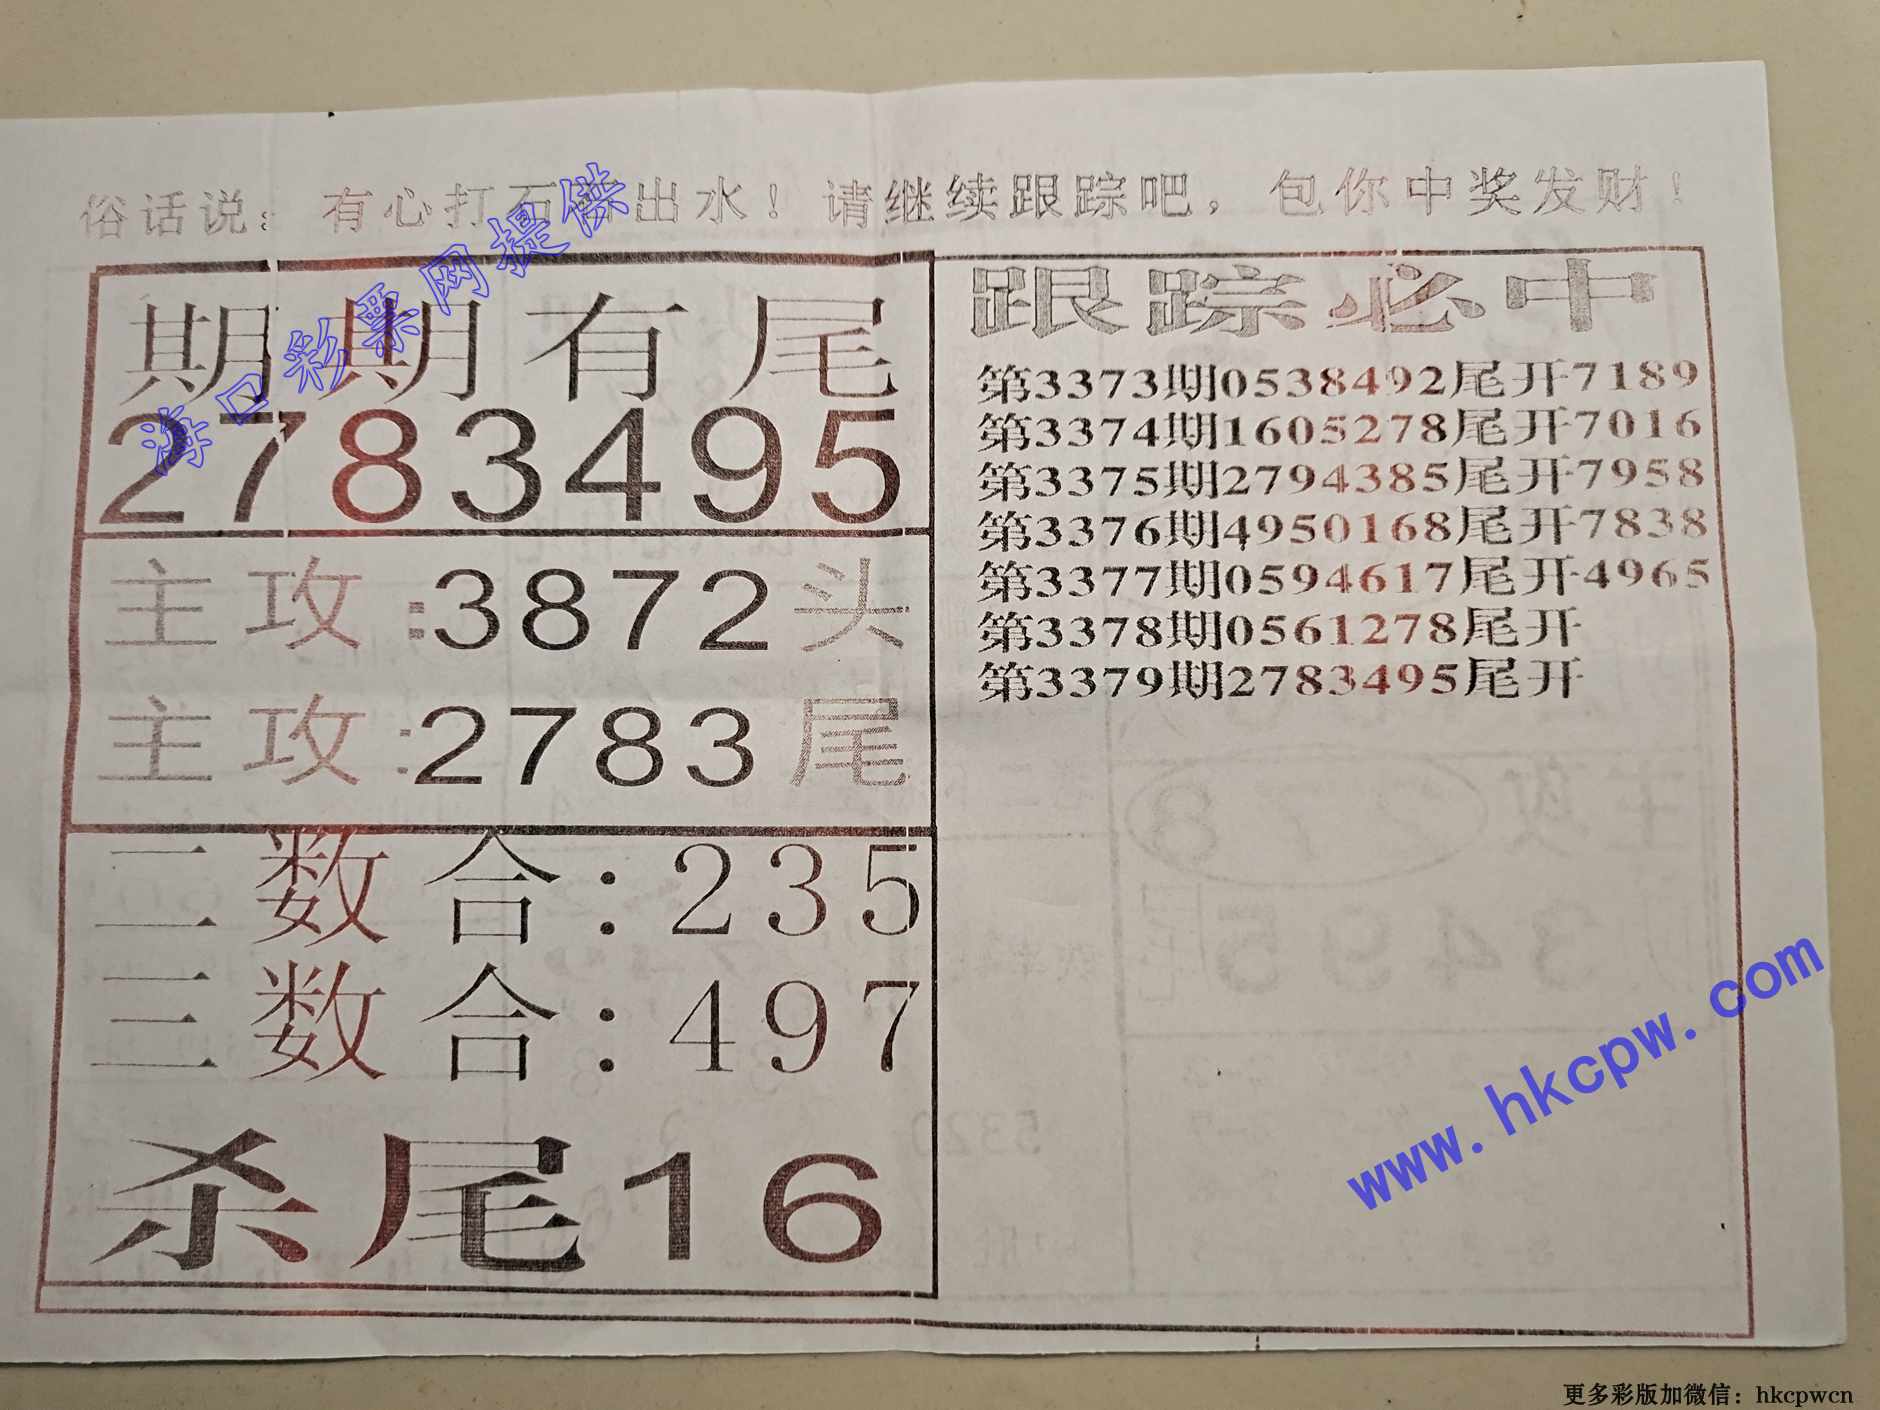 俗话说：有心打石石出水！请继续跟踪吧，包你中奖发财！
期期有尾
2783495
主攻:3872头
主攻:2783尾
三数合:235
三数合:497
杀尾16
跟踪必中
第3373期0538492尾开7189
第3374期1605278尾开7016
第3375期2794385尾开7958
第3376期4950168尾开7838
第3377期0594617尾开4965
第3378期0561278尾开
第3379期2783495尾开
海口彩票网提供
www.hkcpw.com
更多彩版加微信：hkcpwcn